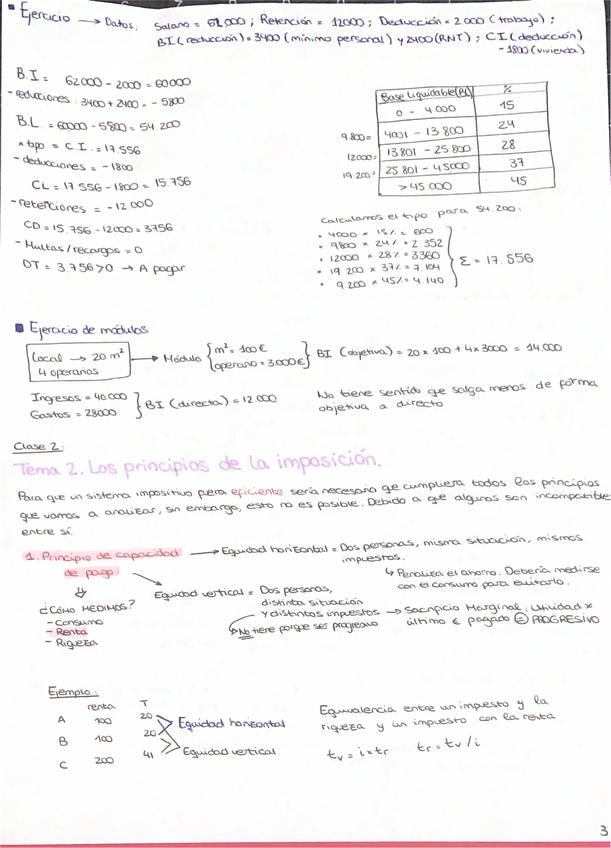 Ejercicio → Datos: Salario = 62.000; Retención = 12000; Deducción = 2000 (trabajo);
BI (reducción) = 3400 (mínimo personal) y 2400 (RNT); CI (deducción)
- 1800 (vivienda)
B.I = 62000 - 2000 = 60000
- reducciones: 3400 + 2400 = - 5800
B.L. = 60000 - 5800 = 54.200
x tipo = C.I. = 17.556
- deducciones = - 1800
CL = 17 556 - 1800 = 15.756
- retenciones = - 12 000
CD = 15.756 - 12000 = 3756
- Multas/recargos = 0
DT = 3.756 > 0 → A pagar
Base Liquidable (BL) %
0 - 4.000 15
9 800 = 4001 - 13 800 24
12000 = 13 801 - 25 800 28
19 200 = 25 801 - 45000 37
> 45 000 45
Calculamos el tipo para 54.200:
• 4000 x 15% = 600
• 9800 x 24% = 2 352
• 12000 x 28% = 3360
• 19 200 x 37% = 7.104
• 9.200 x 45% = 4.140
Σ = 17.556
Ejercicio de módulos
Local → 20 m²
4 operarios
→ Módulo { m² = 100 €
operario = 3000 € } BI (objetiva) = 20 x 100 + 4 x 3000 = 14.000
Ingresos = 40 000
Gastos = 28000 } BI (directa) = 12.000
No tiene sentido qe salga menos de forma
objetiva a directo
Clase 2:
Tema 2. Los principios de la imposición.
Para que un sistema impositivo fuera eficiente sería necesario qe cumpliera todos los principios
que vamos a analizar, sin embargo, esto no es posible. Debido a qe algunos son incompatibles
entre sí.
1. Principio de capacidad
de pago
→ Equidad horizontal = Dos personas, misma situación, mismos
impuestos.
↳ Penaliza el ahorro. Debería medirse
con el consumo para evitarlo.
Equidad vertical = Dos personas,
distinta situación
y distintos impuestos → Sacrificio Marginal: Utilidad x
último € pagado = PROGRESIVO
No tiene porque ser progresivo
¿Cómo MEDIMOS?
- Consumo
- Renta
- Riqueza
Ejemplo:
renta T
A 100 20
B 100 20
C 200 41
Equidad horizontal
Equidad vertical
Equivalencia entre un impuesto y la
riqueza y un impuesto con la renta
tv = i x tr tr = tv / i
3